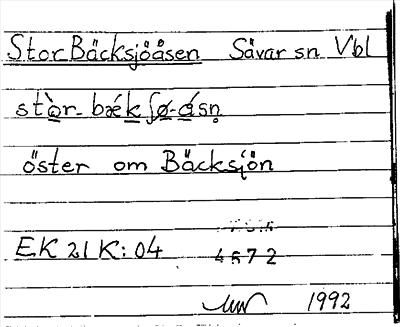 Stor Bäcksjöåsen Sävar sn Vbl
stòr- bæ´kʃø-ásn̥
öster om Bäcksjön
EK 21 K: 04 4572
1992